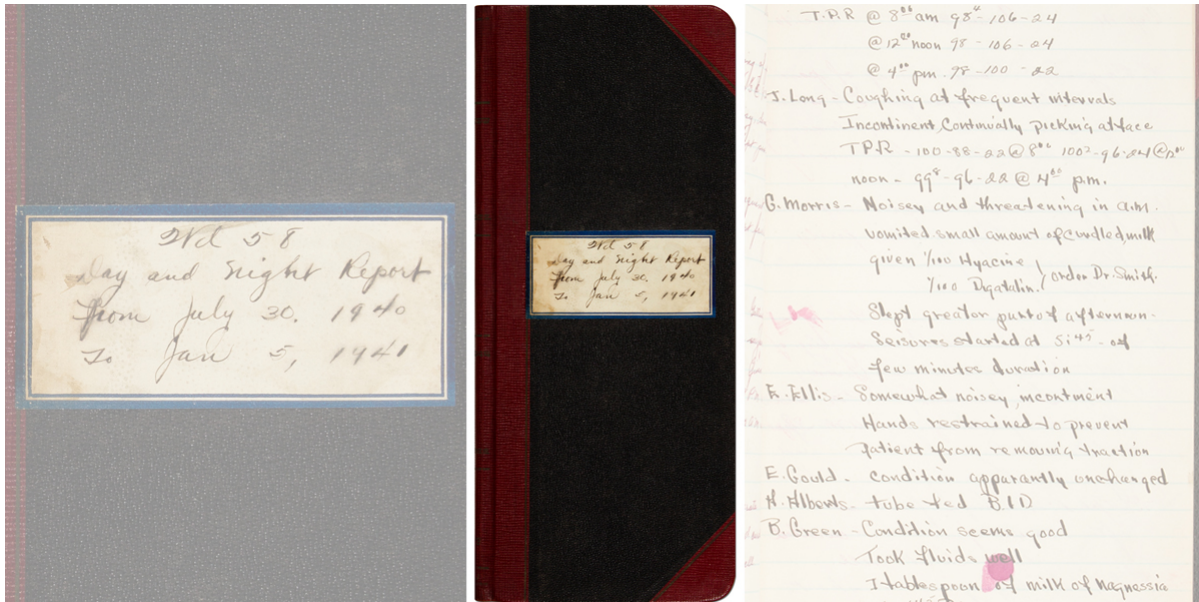 Wd 58
Day and Night Report
From July 30. 1940
To Jan 5, 1941
Wd 58
Day and Night Report
From July 30, 1940
To Jan 5, 1941
T.P.R @ 8⁰⁰ am 98⁴ - 106 - 24
@ 12⁰⁰ noon 98 - 106 - 24
@ 4⁰⁰ pm. 98 - 100 - 22
J. Long - Coughing at frequent intervals
Incontinent, Continually picking at face
T.P.R - 100 - 88 - 22 @ 8⁰⁰ 100² - 96 - 24 @ 12⁰⁰
noon - 99⁸ - 96 - 22 @ 4⁰⁰ p.m.
G. Morris - Noisey and threatening in a.m.
vomited small amount of curdled milk
given 1/100 Hyacine
1/100 Digatalin. order Dr. Smith.
Slept greater part of afternoon -
Seisures started at 5:45 - of
few minutes duration
E. Ellis - Somewhat noisey, incontinent
Hands restrained to prevent
Patient from removing traction
E. Gould - condition apparantly unchanged
H. Alberts - tube fed B.I.D
B. Green - Condition seems good
Took fluids well
1 tablespoon of milk of Magnessia